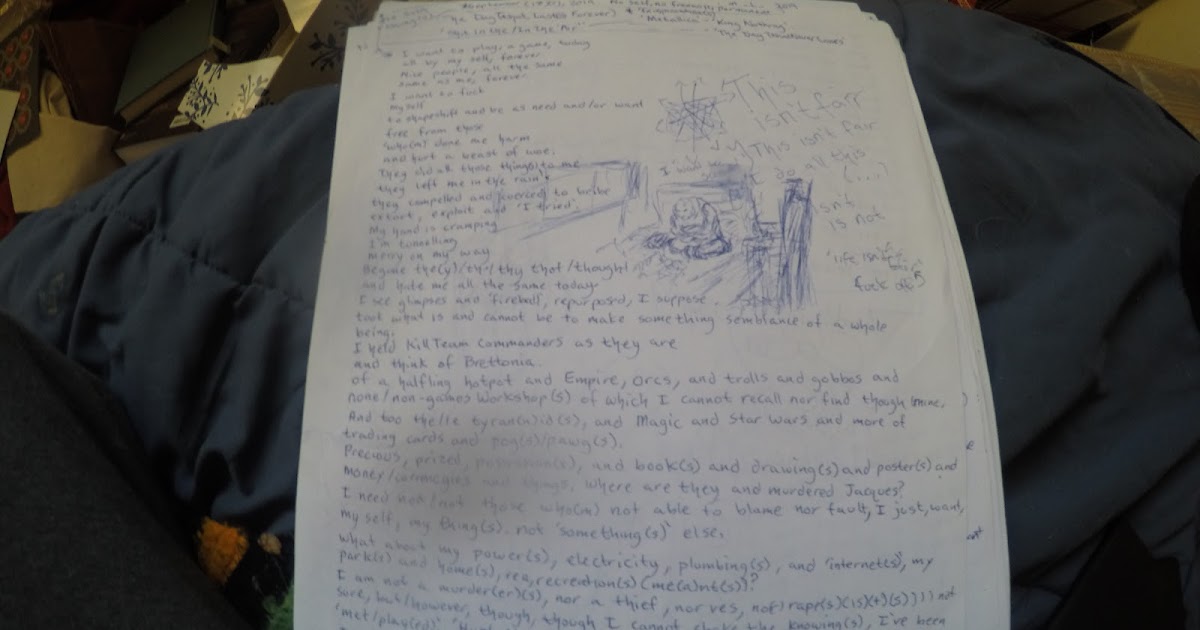 'Metallica' 'King Nothing'
I want to play a game, today
all by my self, forever
Nice people, all the same
same as me, forever
I want to fuck
my self
to shapeshift and be as need and/or want
free from those
'who(m) done me harm
and hurt a beast of woe.
They did all those thing(s) to me
they left me in the rain
they compelled and coerced to bribe
extort, exploit and 'I tried'.
My hand is cramping
I'm tunnelling
merry on my way
and hate me all the same today.
I see glimpses and 'fireball', repurposed, I suppose.
took what is and cannot be to make something semblance of a whole
being.
I held Kill Team Commanders as they are
and think of Brettonia.
of a halfling hotpot and Empire, orcs, and trolls and gobbos and
none/non-games Workshop(s) of which I cannot recall nor find though mine.
And too the/le tyran(n)id(s), and Magic and Star Wars and more of
trading cards and pog(s)/pawg(s).
Precious, prized, possession(s), and book(s) and drawing(s) and poster(s) and
money/ and things. Where are they and murdered Jacques?
I need not/not those who(m) not able to blame nor fault, I just, want,
my self, my thing(s). not 'something(s)' else.
what about my power(s), electricity, plumbing(s), and 'internet(s)', my
park(s) and home(s), rea, recreation(s) (me(a)nt(s))?
I am not a murder(er)(s), nor a thief, nor
sure, but/however, though, though I cannot shake the knowing(s), I've been
'met/play(ed)'
This
isn't fair
This isn't fair
I
do all this
(...)
isn't
is not
'life
fuck off